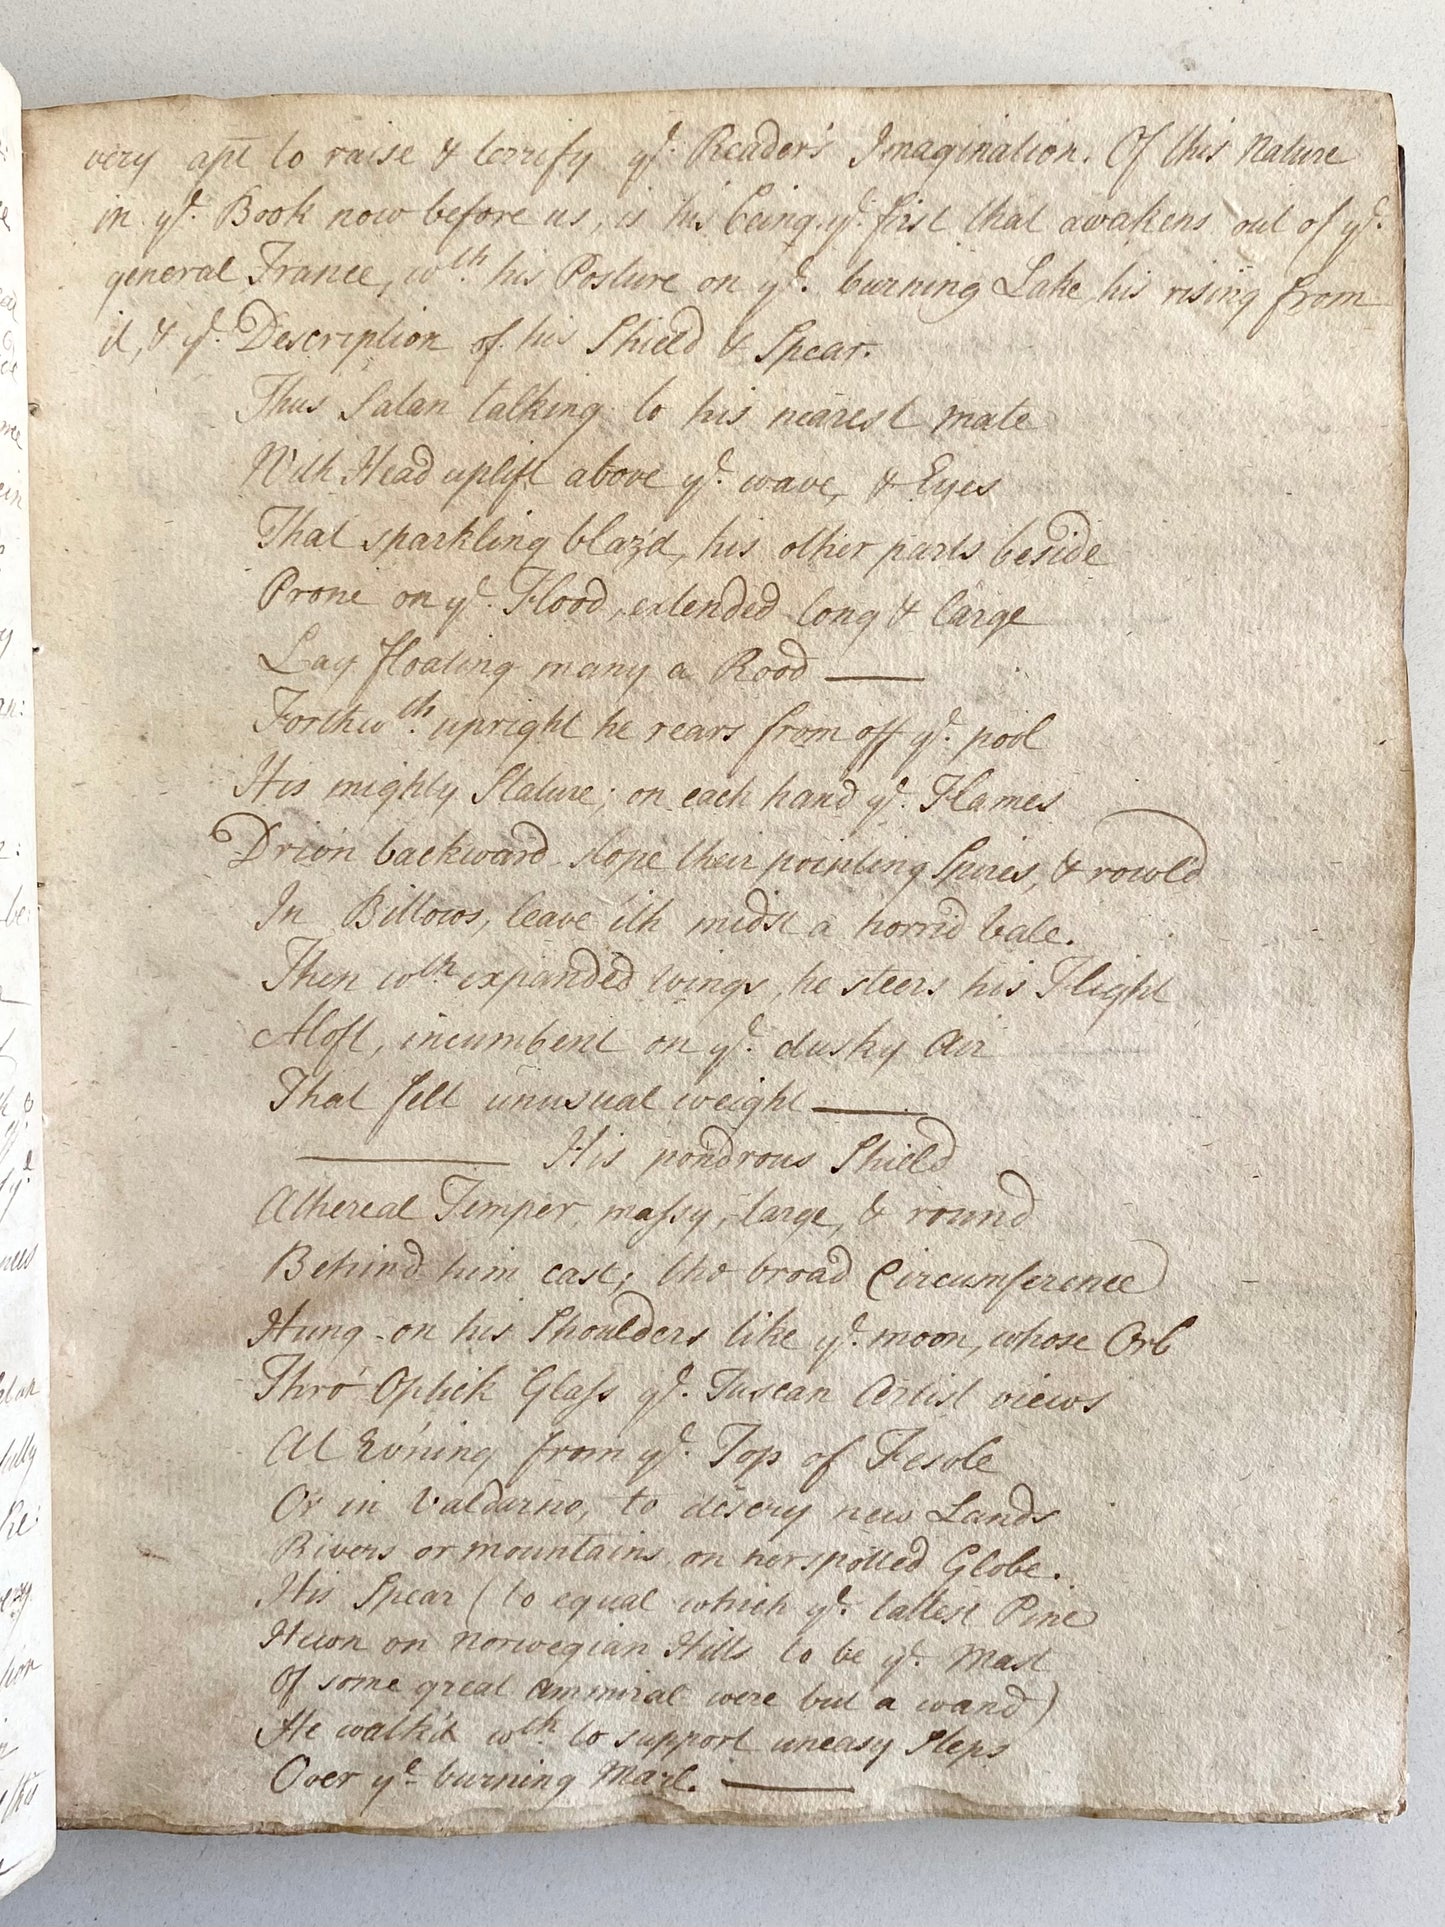 very apt to raise & terrify yᵉ. Reader's Imagination. Of this Nature
in yᵉ. Book now before us, is his being yᵉ. first that awakens out of yᵉ.
general Trance, wᵗʰ. his Posture on yᵉ. burning Lake, his rising from
it, & yᵉ. Description of his Shield & Spear.
Thus Satan talking to his nearest mate
With Head uplift above yᵉ. wave, & Eyes
That sparkling blaz'd, his other parts beside
Prone on yᵉ. Flood, extended long & large
Lay floating many a Rood —
Forthwᵗʰ. upright he rears from off yᵉ. pool
His mighty Stature; on each hand yᵉ. Flames
Driv'n backward slope their pointing Spires, & rowl'd
In Billows, leave ith midst a horrid vale.
Then wᵗʰ expanded wings, he steers his Flight
Aloft, incumbent on yᵉ. dusky Air
That felt unusual weight —
— His pondrous Shield
Athereal Temper, maſsy, large, & round
Behind him cast; the broad Circumference
Hung on his Shoulders like yᵉ. moon, whose Orb
Thro' Optick Glaſs yᵉ. Tuscan Artist views
At Ev'ning from yᵉ. Top of Fesole
Or in Valdarno, to descry new Lands
Rivers or mountains on her spotted Globe.
His Spear (to equal which yᵉ. tallest Pine
Hewn on Norwegian Hills to be yᵉ. Mast
Of some great ammiral were but a wand)
He walk'd wᵗʰ. to support uneasy Steps
Over yᵉ burning Marl. —